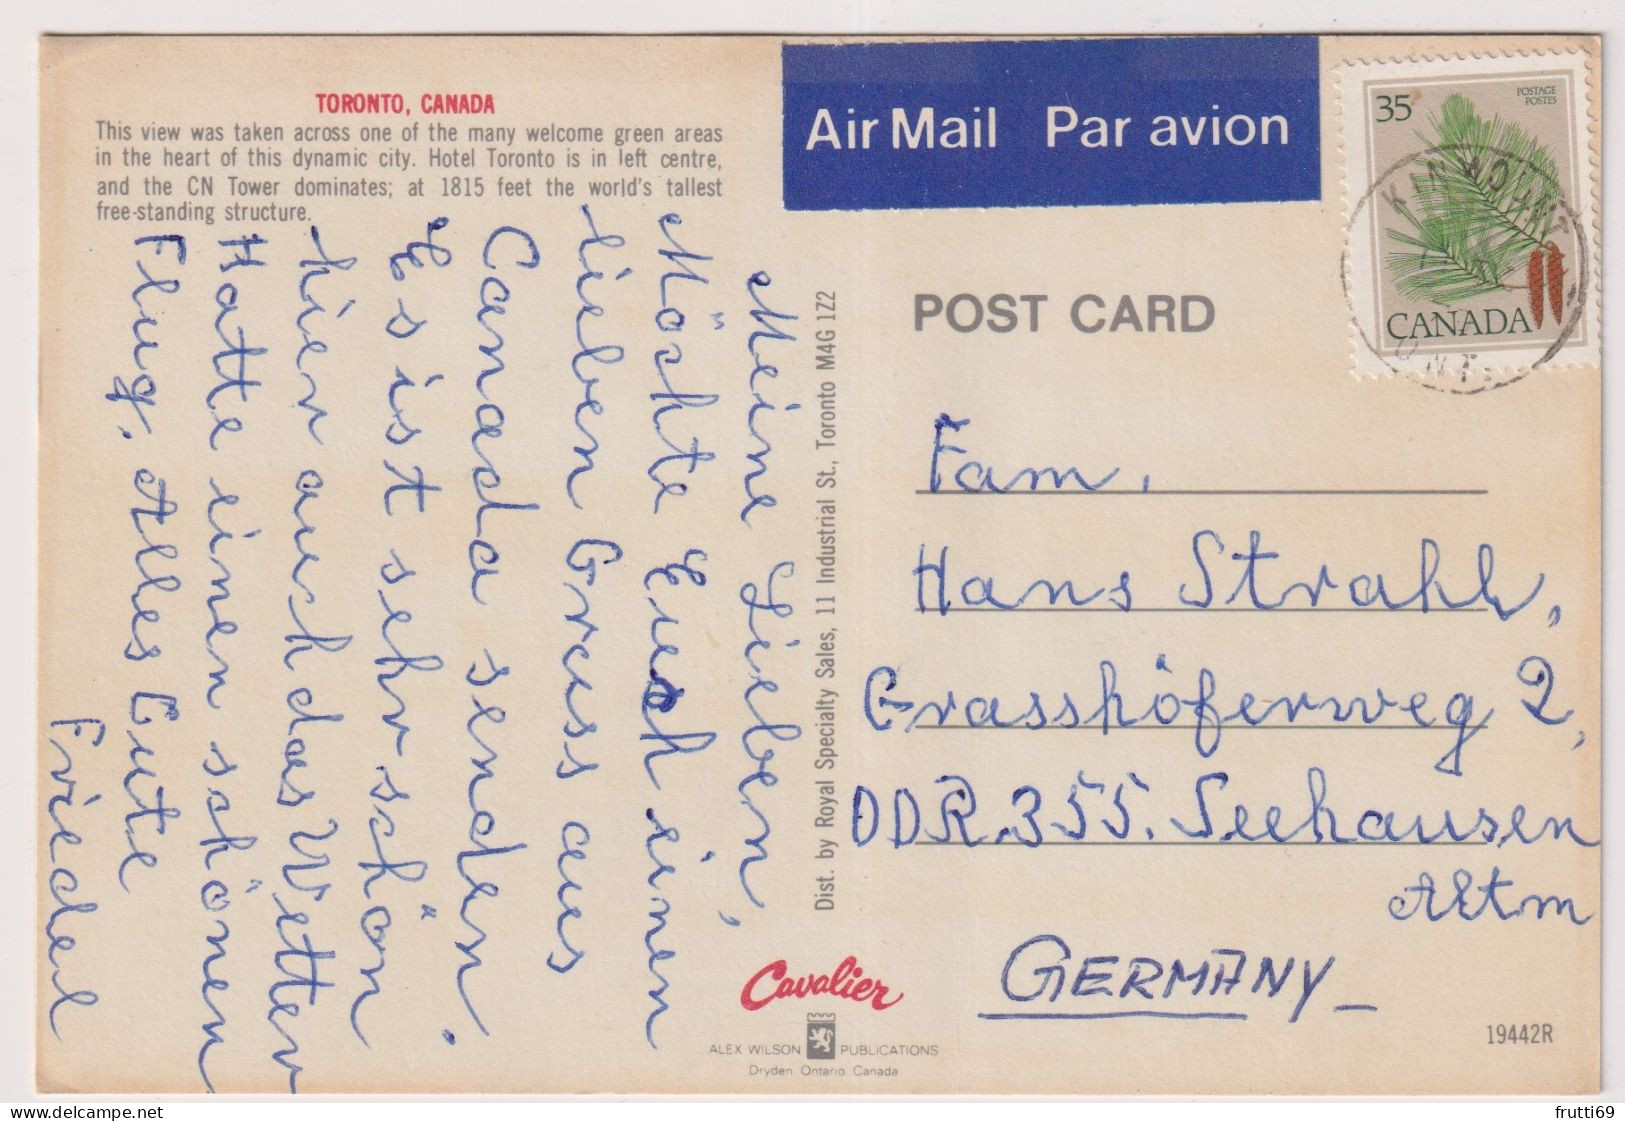 TORONTO, CANADA
This view was taken across one of the many welcome green areas
in the heart of this dynamic city. Hotel Toronto is in left centre,
and the CN Tower dominates; at 1815 feet the world's tallest
free-standing structure.
Meine Lieben,
Möchte Euch einen
lieben Gruss aus
Canada senden.
Es ist sehr schön
hier auch das Wetter
Hatte einen schönen
Flug. Alles Gute
Friedel
Dist. by Royal Specialty Sales, 11 Industrial St., Toronto M4G 1Z2
Air Mail Par avion
35
POSTAGE
POSTES
CANADA
KINMOUNT
ONT.
POST CARD
Fam.
Hans Strahl,
Grasshöferweg 2,
DDR. 355. Seehausen
Altm
GERMANY
Cavalier
ALEX WILSON PUBLICATIONS
Dryden, Ontario, Canada
19442R
www.delcampe.net
frutti69